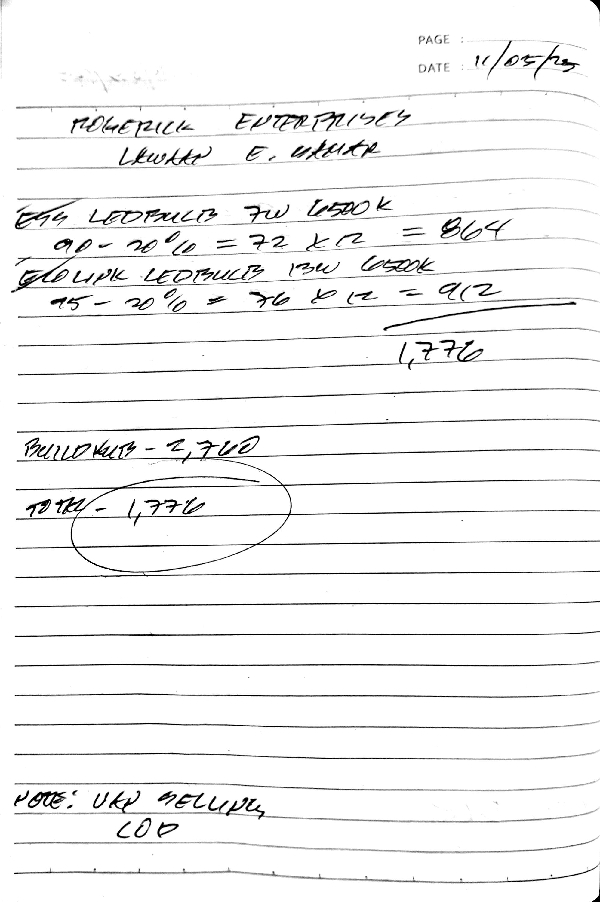 PAGE :
DATE : 11/05/25
ENTERPRISES
LAWAAN E. SAMAR
LEDBULB 7W 6500K
90 - 20% = 72 X 12 = 864
ECOLINK LEDBULB 13W 6500K
95 - 20% = 76 X 12 = 912
1,776
- 2,760
TOTAL - 1,776
NOTE: VAN SELLING
COD